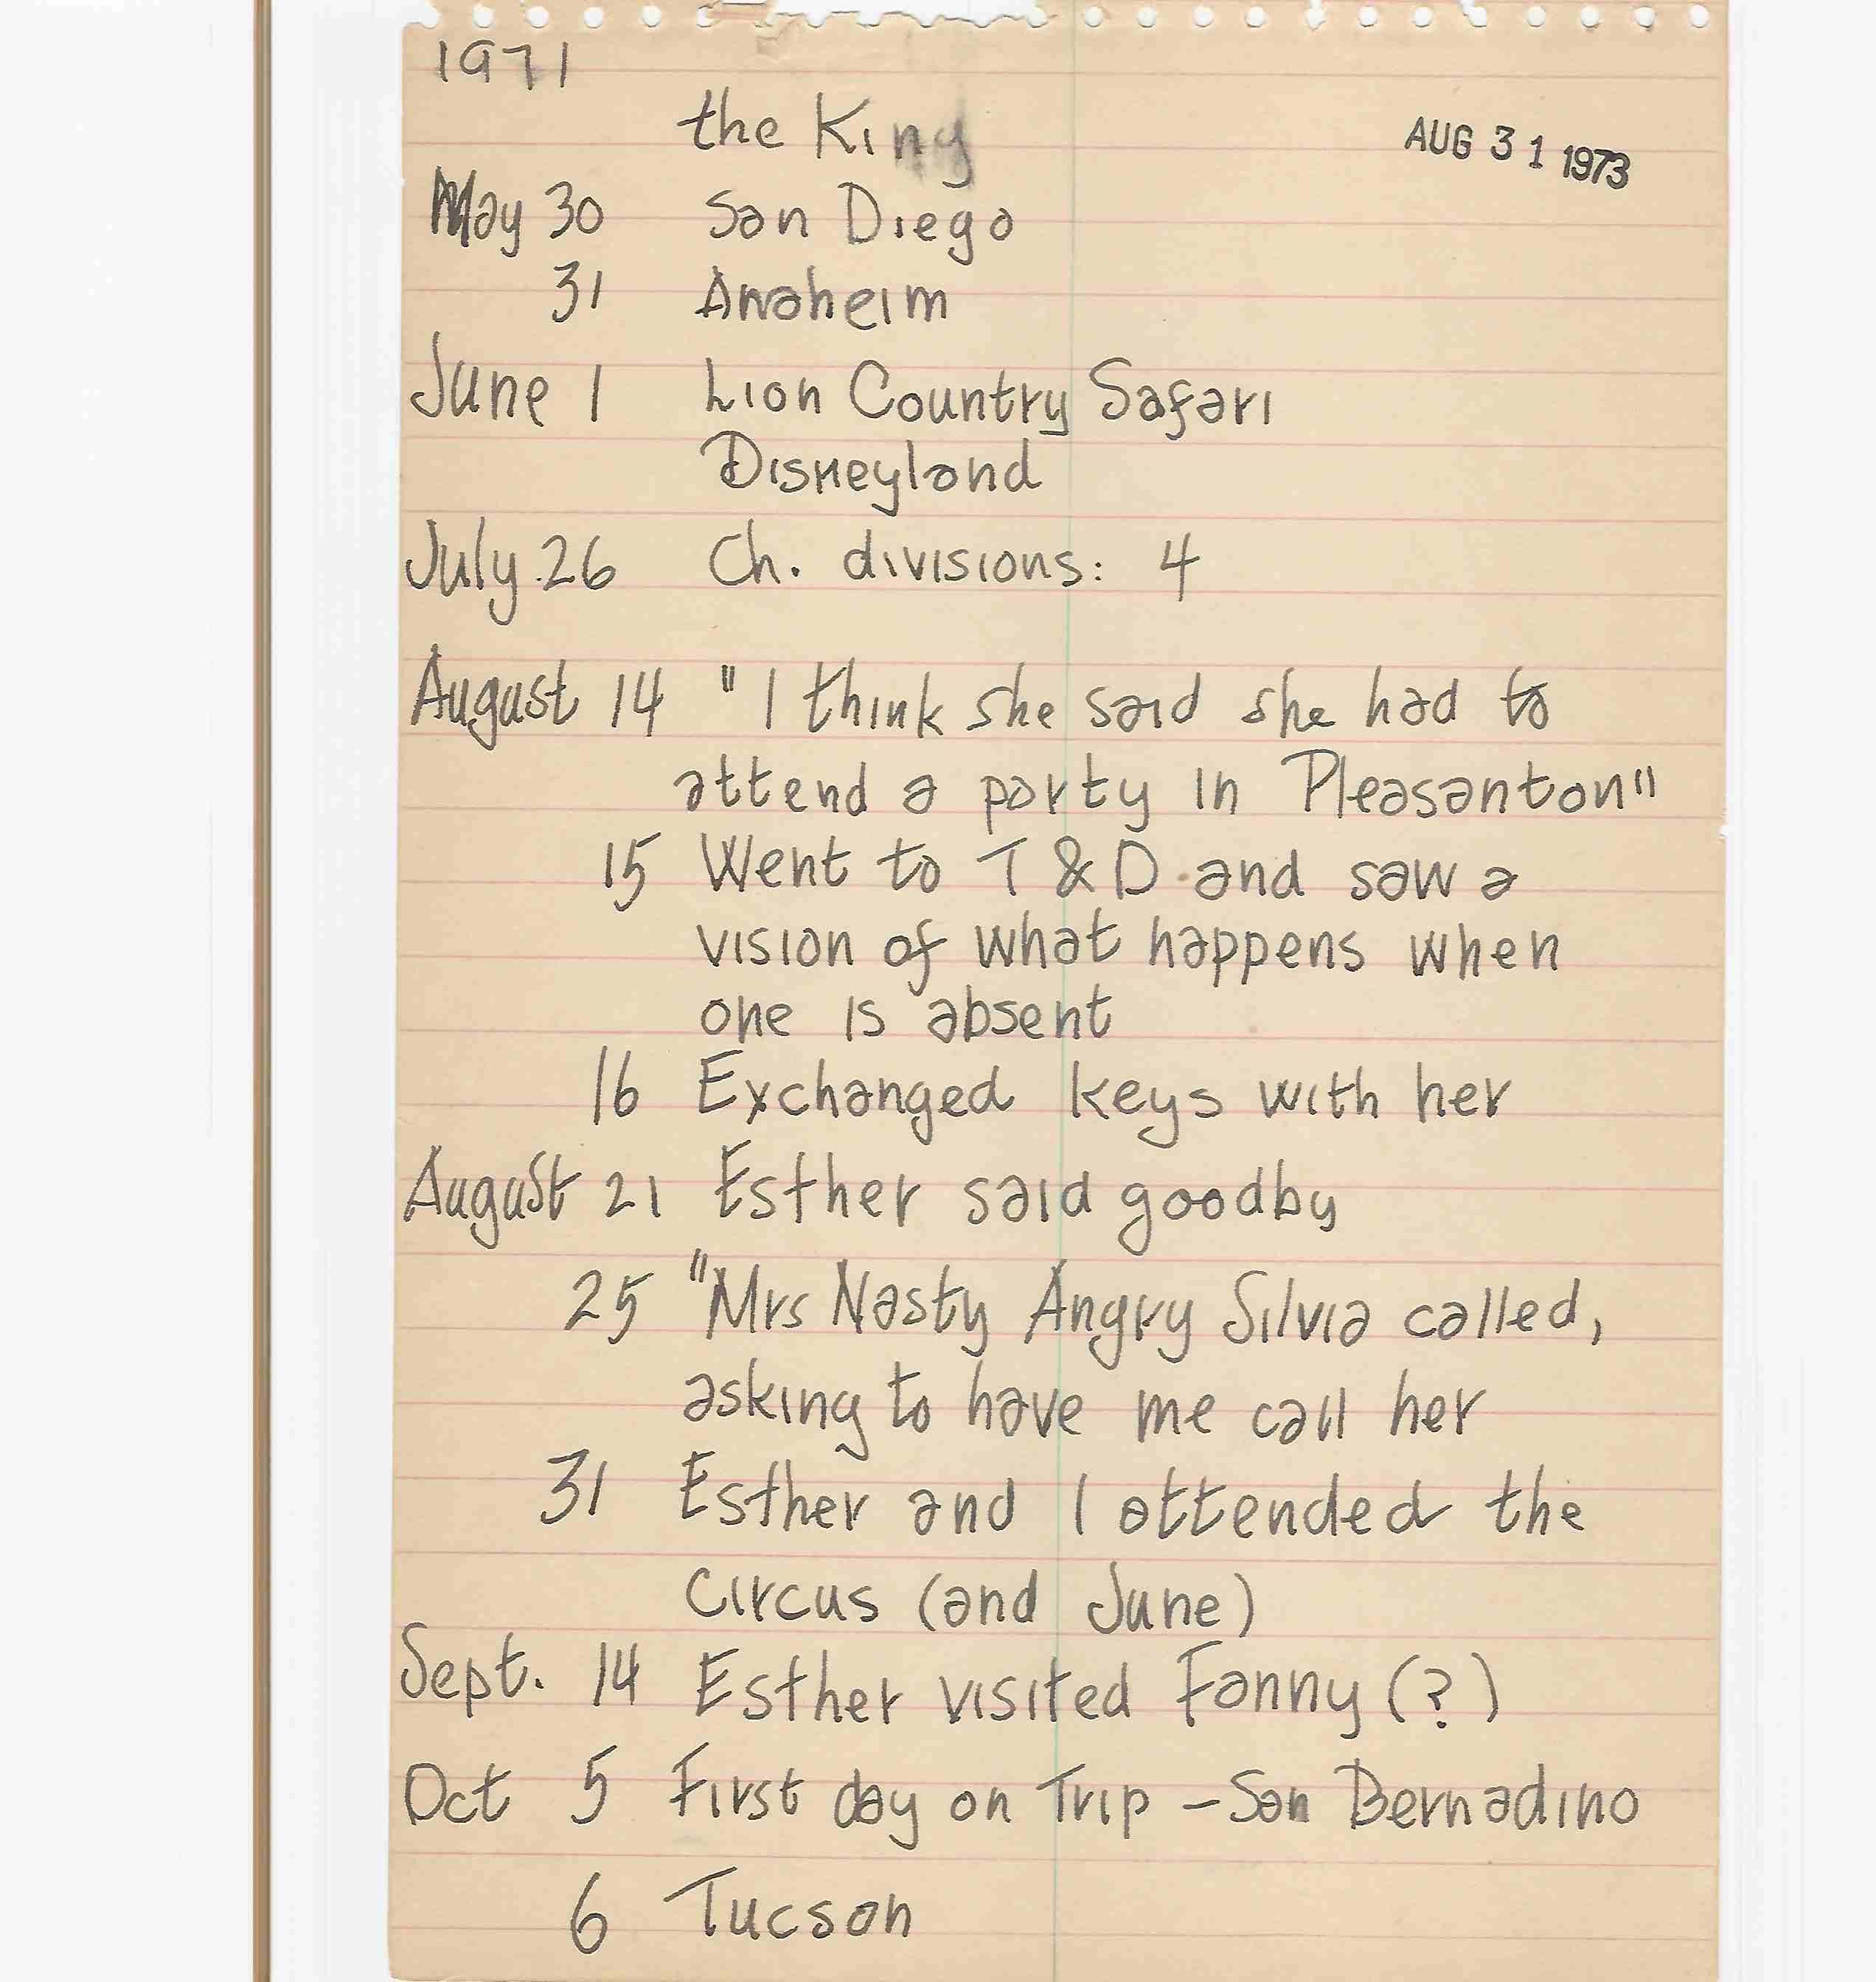 1971
the King
AUG 31 1973
May 30 San Diego
31 Anaheim
June 1 Lion Country Safari
Disneyland
July 26 Ch. divisions: 4
August 14 "I think she said she had to
attend a party in Pleasanton"
15 Went to T & D and saw a
vision of what happens when
one is absent
16 Exchanged keys with her
August 21 Esther said goodby
25 "Mrs Nasty Angry Silvia called,
asking to have me call her
31 Esther and I attended the
Circus (and June)
Sept. 14 Esther visited Fanny (?)
Oct 5 First day on Trip - San Bernadino
6 Tucson